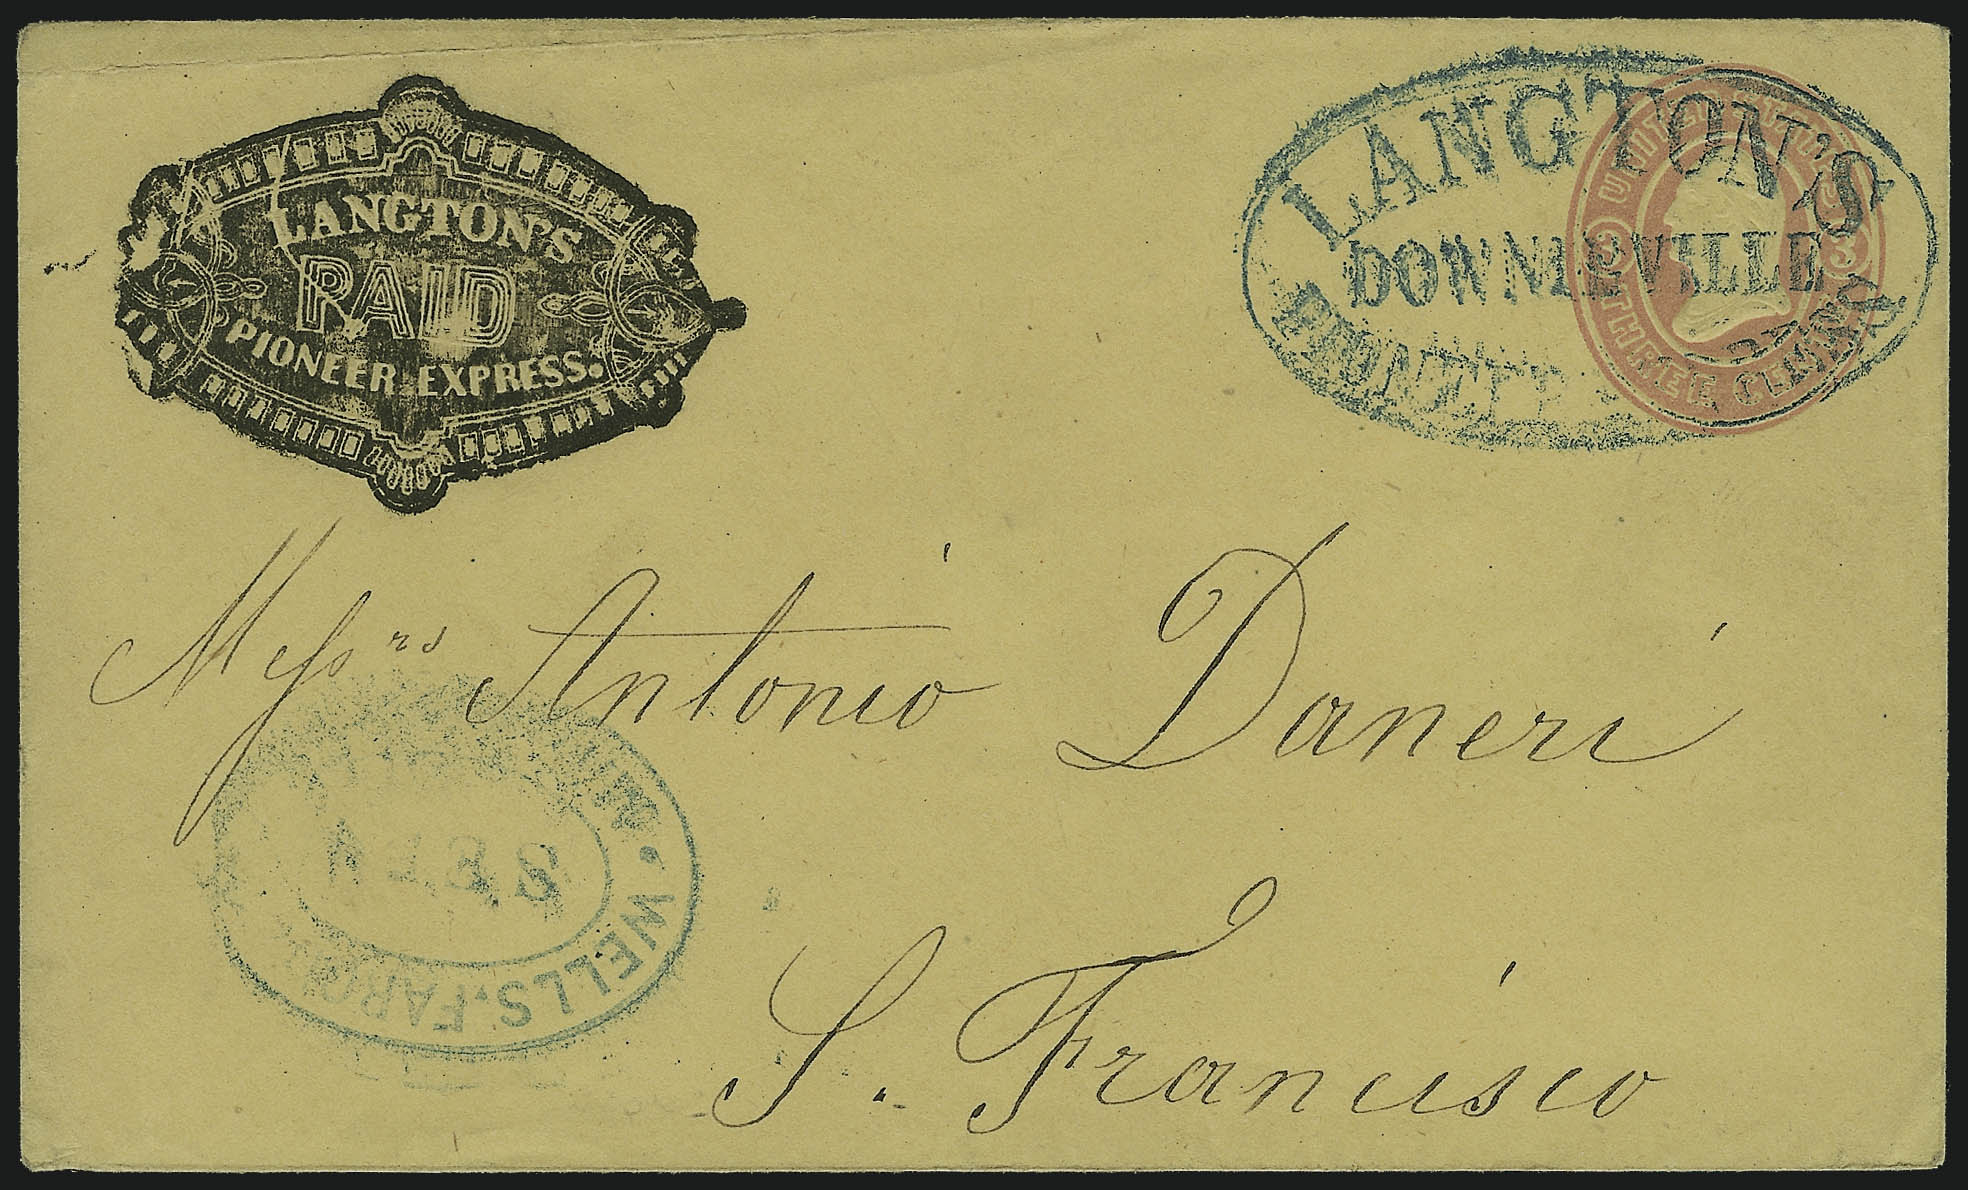 LANGTON'S
PAID
PIONEER EXPRESS.
LANGTON'S
DOWNIEVILLE
PIONEER
UNITED STATES
3 3
THREE CENTS
Messrs Antonio Daneri
S. Francisco
WELLS. FARGO